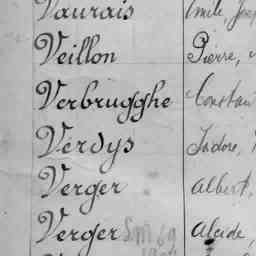 Vaurais Emile,
Veillon Pierre,
Verbrugghe Constan
Verdys Isidore,
Verger Albert,
Verger Alcide,